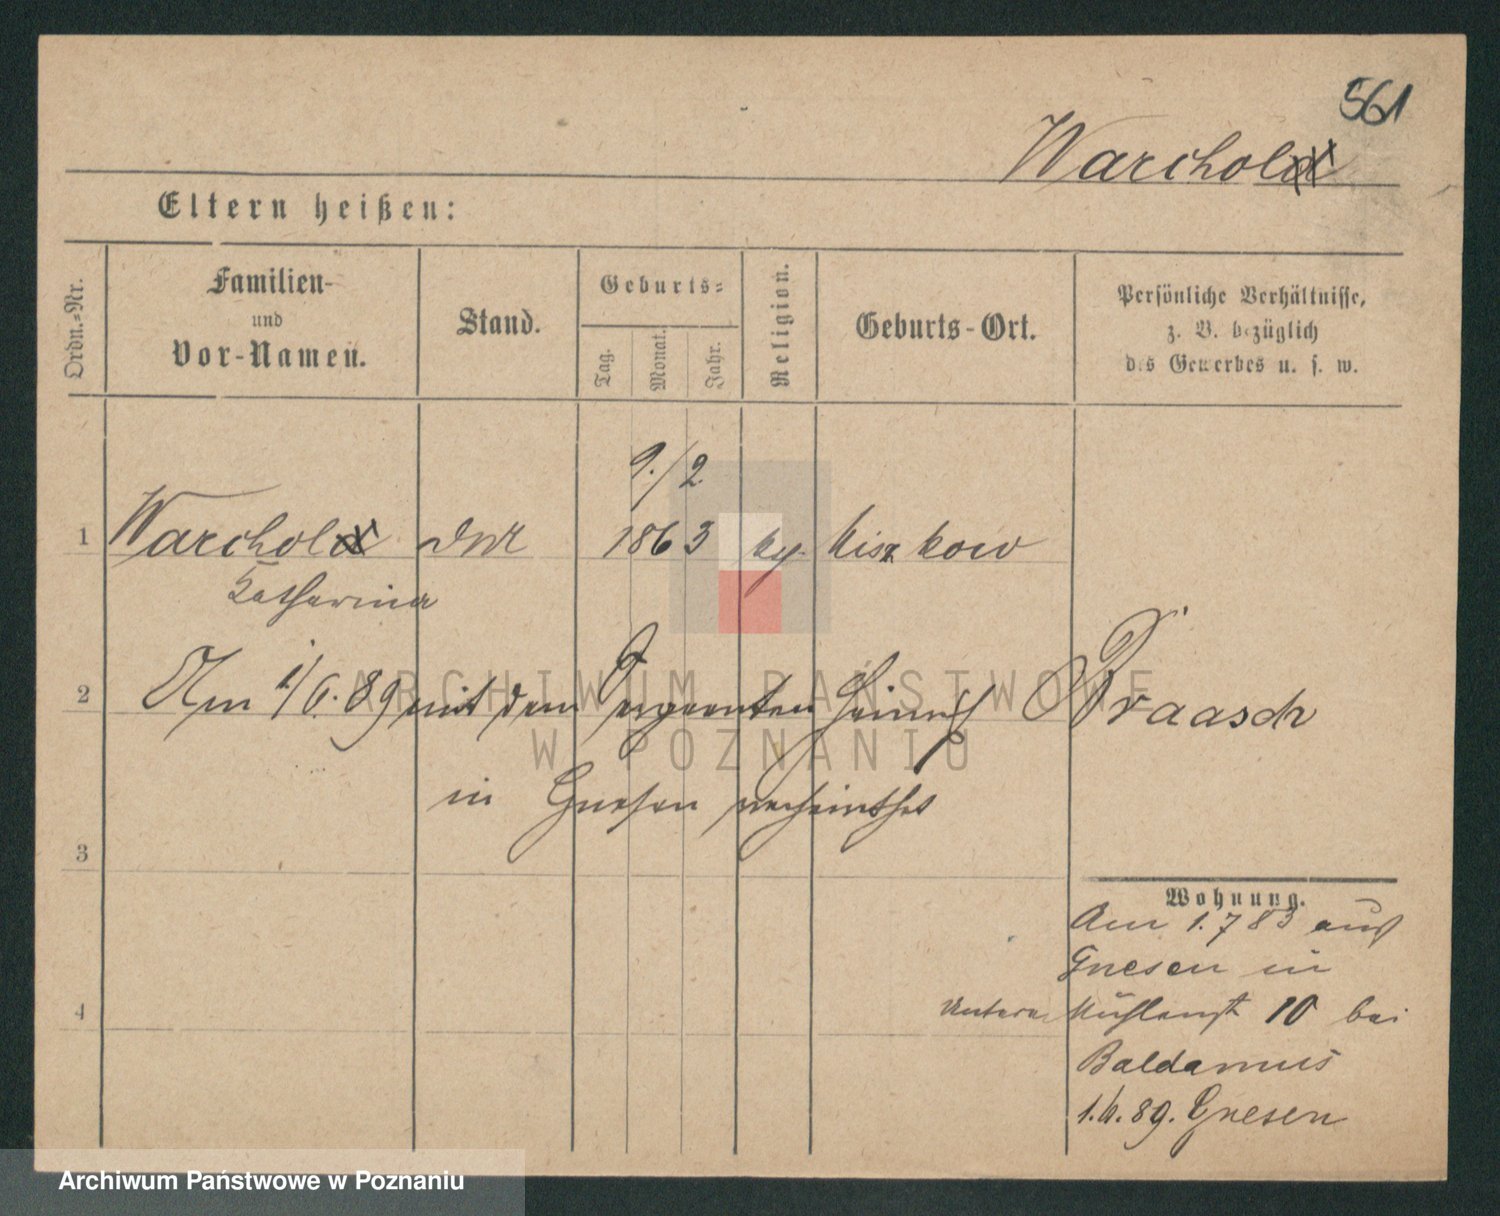 561
Warchol
Eltern heißen:
Ordn.=Nr.
Familien-
und
Vor-Namen.
Stand.
Geburts=
Tag.
Monat.
Jahr.
Religion.
Geburts-Ort.
Persönliche Verhältnisse,
z. B. bezüglich
des Gewerbes u. s. w.
9./2
1 Warchol 1863 Miszkow
Katharina
2 Am 1/6. 89 mit dem Sergeanten Heinrich Praasch
in Gnesen verheirathet
3
Wohnung.
Am 1.7 83 aus
Gnesen in
4 Untere Mühlenst 10 bei
Baldamus
1.6.89. Gnesen
ARCHIWUM PAŃSTWOWE
W POZNANIU
Archiwum Państwowe w Poznaniu